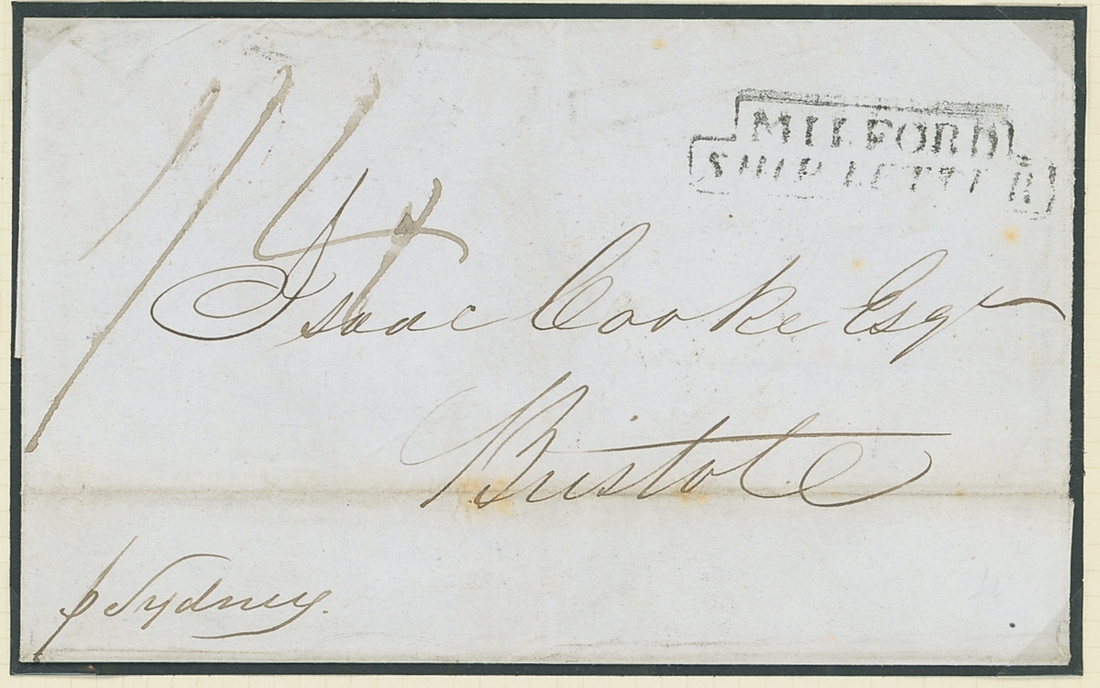 MILFORD
SHIP LETTER
1/4
Isaac Cooke Esqr
Bristol
p Sydney.